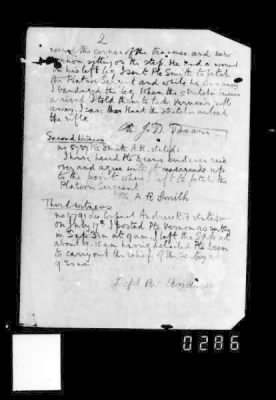 2
round the corner of the traverse and saw
Vernon sitting on the step. He had a wound
in his left leg. I sent Pte Smith to fetch
the Platoon Sergeant and while he was away
I bandaged the leg. When the stretcher bearers
arrived I told them to take Vernon's rifle
away. I saw them
the rifle
J.D.
Second Witness
Pte Smith A.R. states:
I have heard Pte Dears evidence read
over and agree with it
up
to the point where I left to fetch the
Platoon Sergeant.
A R Smith
Third witness
R.A. states:-
on July 17th I posted Pte Vernon as sentry
in Sap 3 at 9 am. I left the Sap at
about 9.15 am having detailed Pte
to carry out the relief of the sentry at
L/Cpl R.
0286